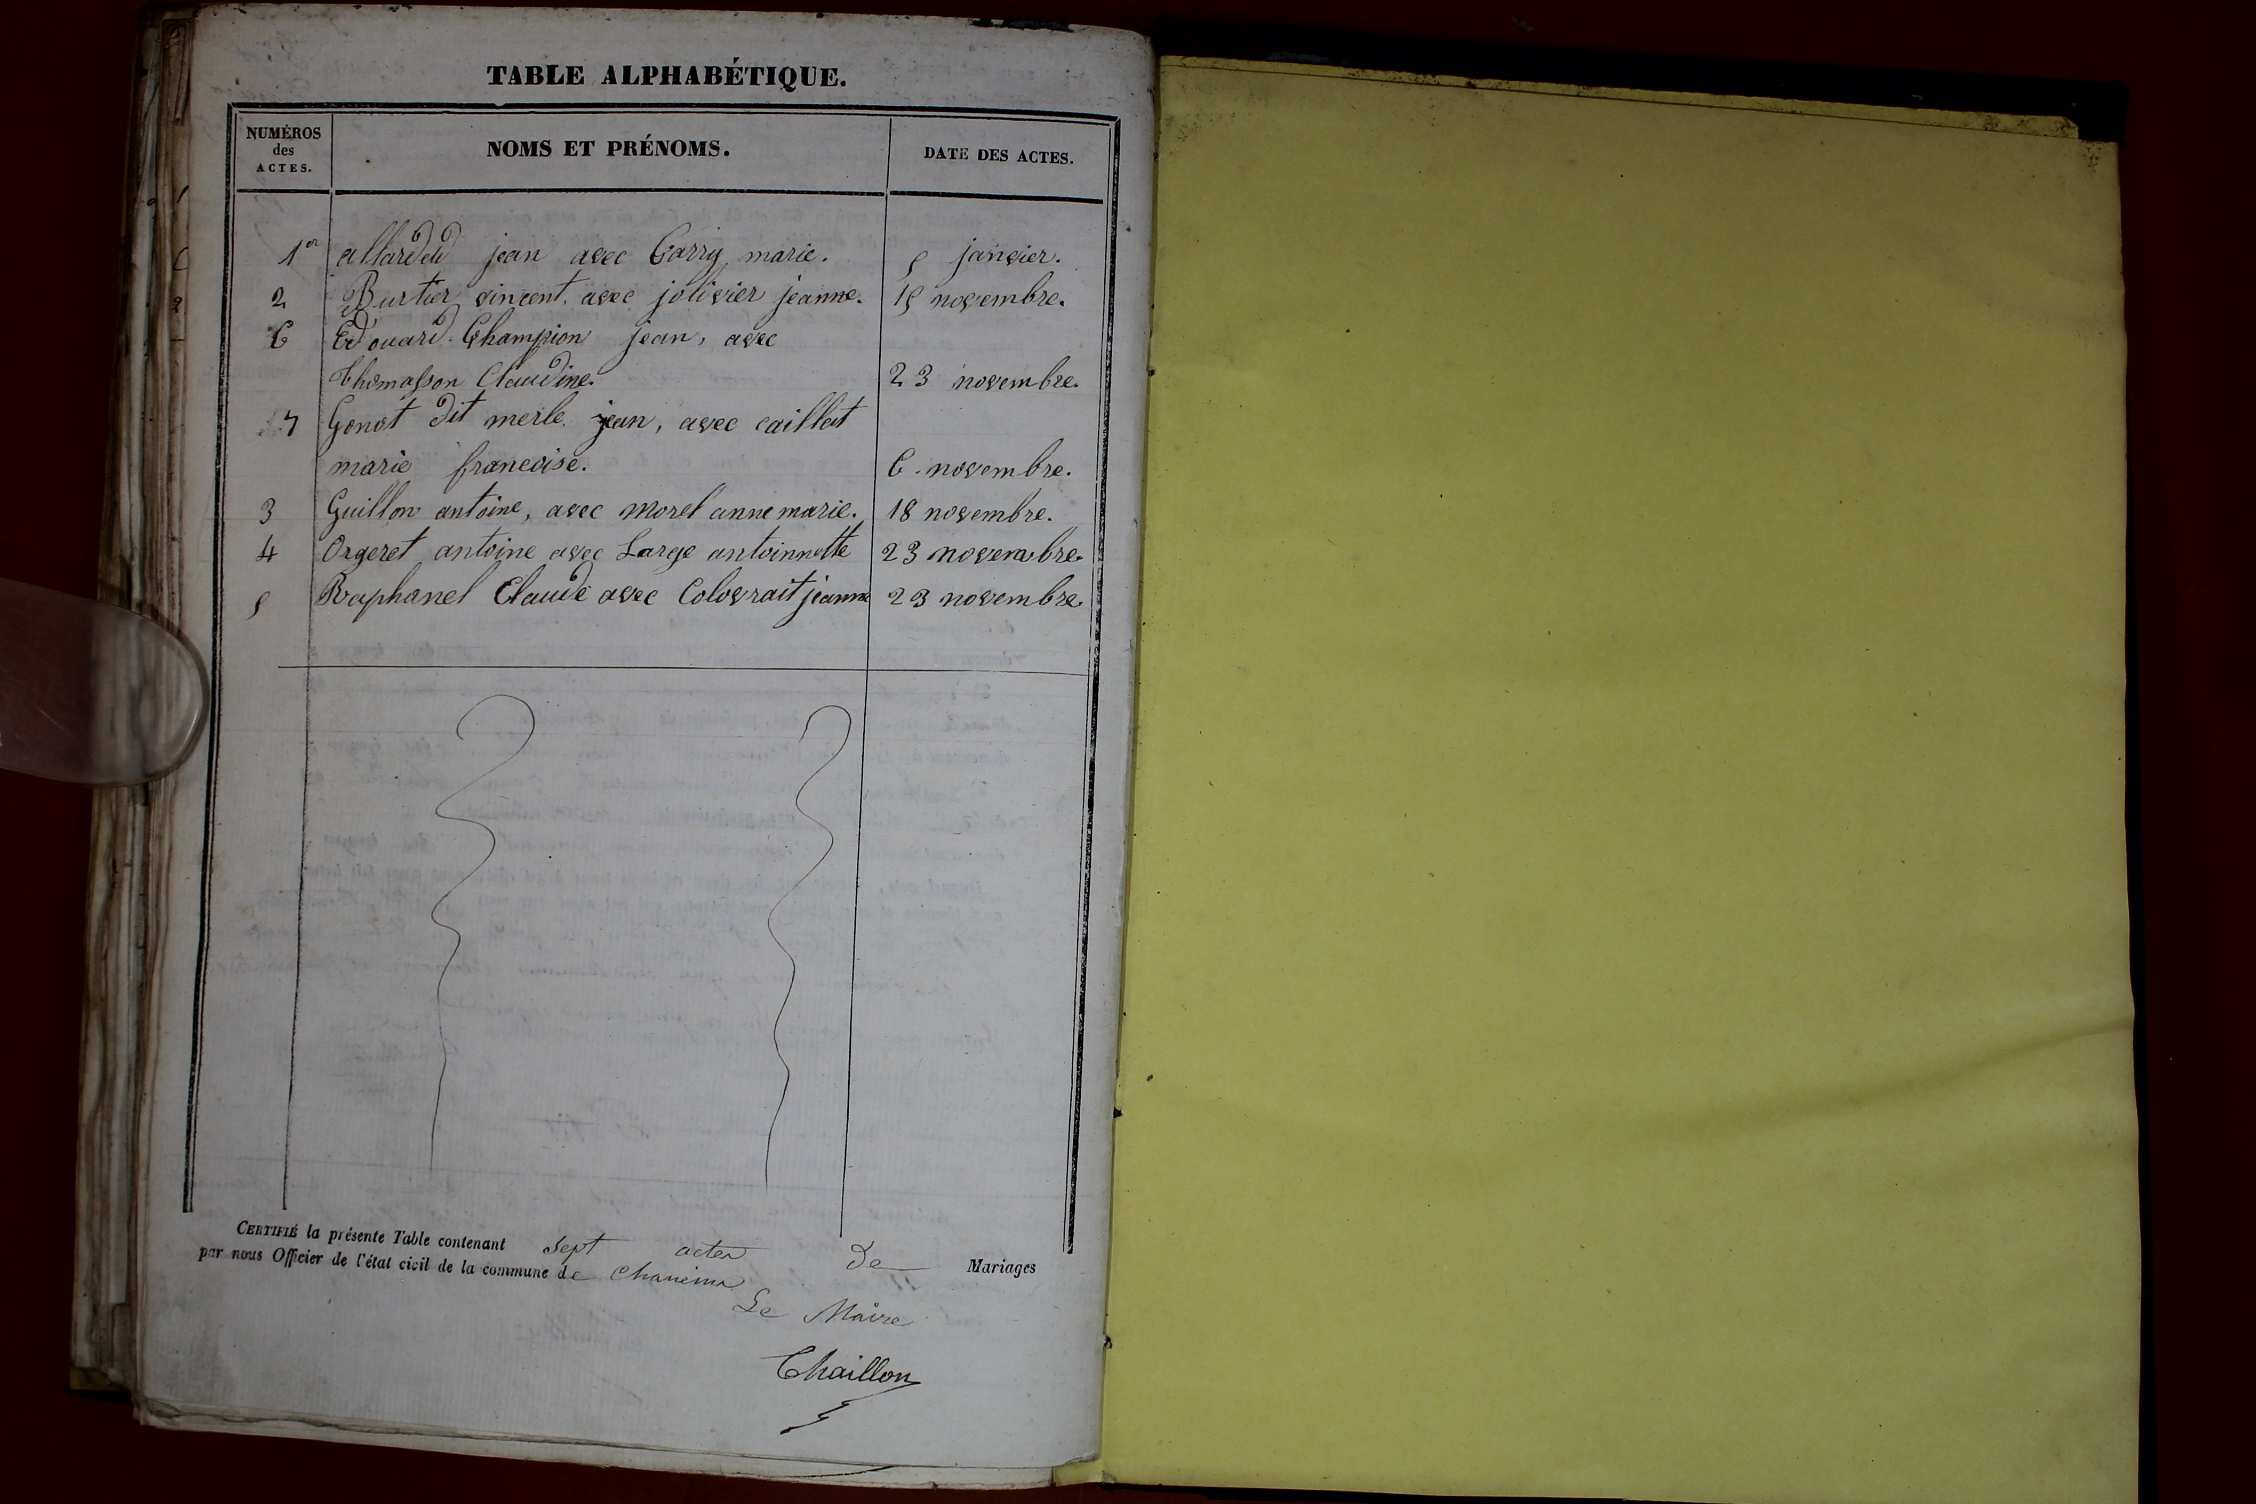 TABLE ALPHABÉTIQUE.
NUMÉROS des ACTES. NOMS ET PRÉNOMS. DATE DES ACTES.
1er allardet jean avec Garry marie. 5 janvier.
2 Burtier vincent, avec jolivier jeanne. 15 novembre.
6 Edouard Champion jean, avec
Thomasson Claudine. 23 novembre.
7 Gonot dit merle jean, avec caillat
marie francoise. 6 novembre.
3 Guillon antoine, avec morel anne marie. 18 novembre.
4 Orgeret antoine avec Large antoinnette 23 novembre.
5 Raphanel Claude avec Colovrait jeanne 23 novembre.
CERTIFIÉ la présente Table contenant sept actes de Mariages
par nous Officier de l'état civil de la commune de
Le Maire
Chaillon